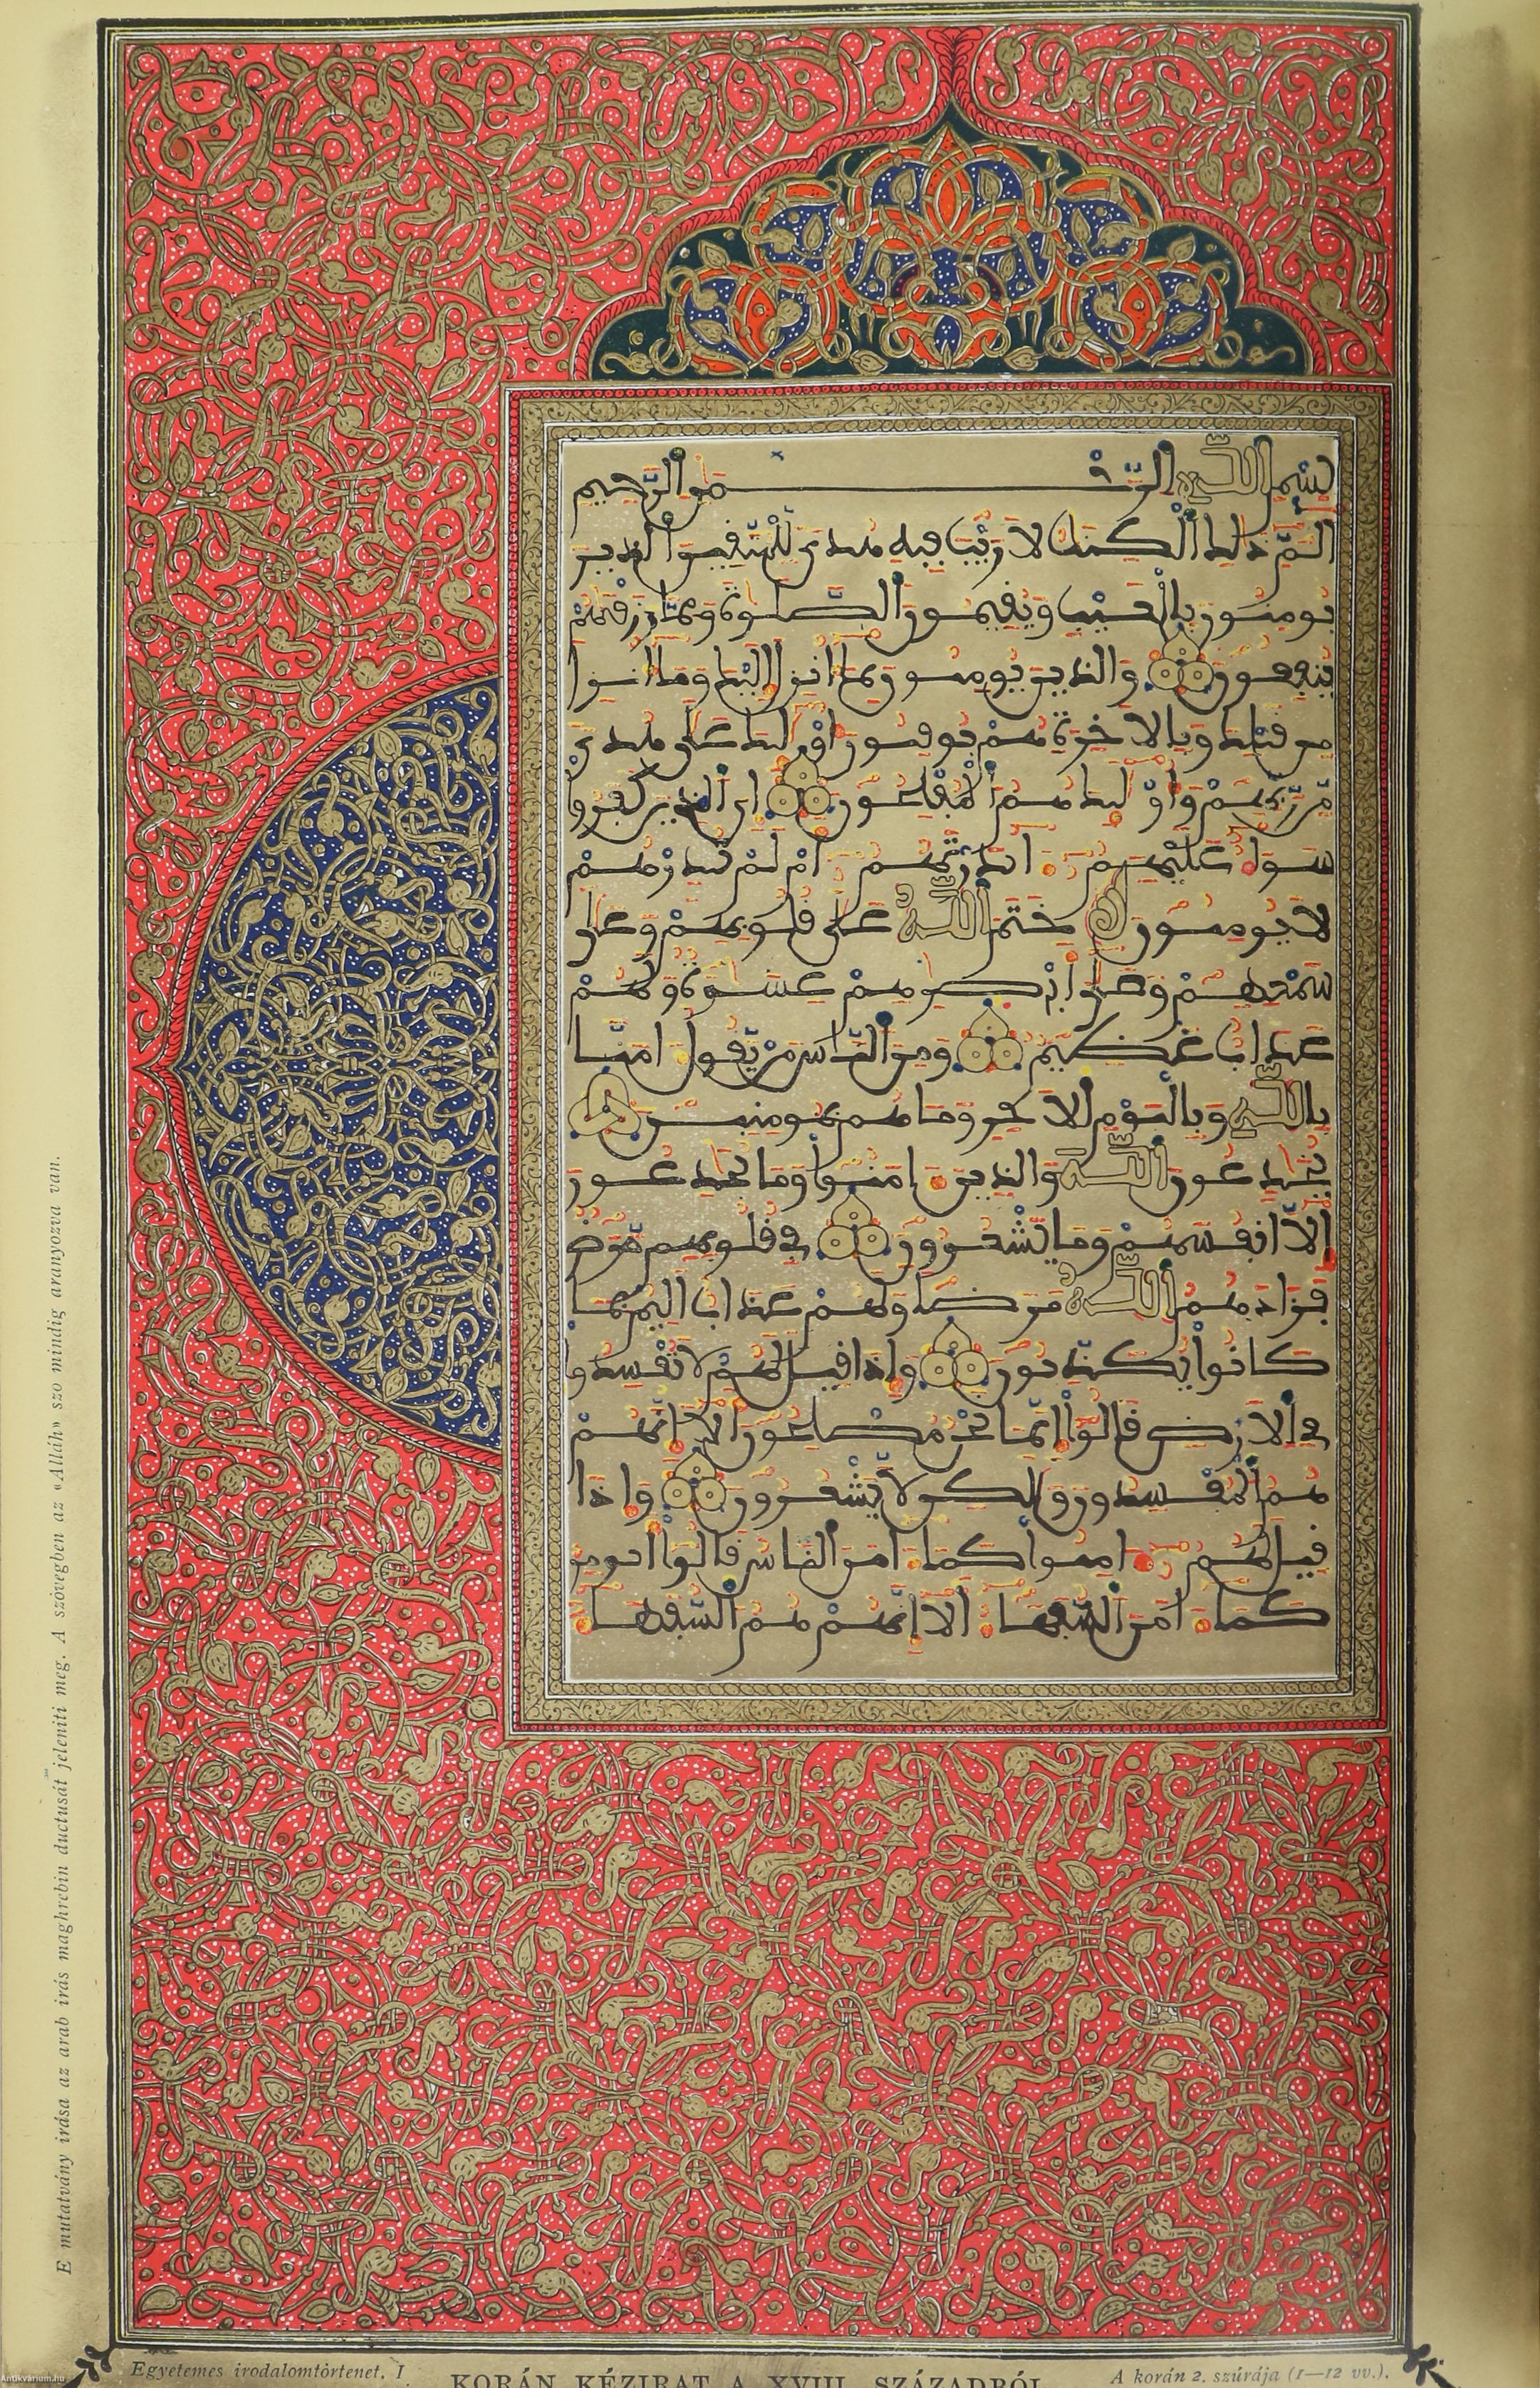 بسم الله الرحمن الرحيم
الم ذلك الكتب لا ريب فيه هدى للمتقين الذين
يومنون بالغيب ويقيمون الصلوة ومما رزقنهم
ينفقون والذين يومنون بما انزل اليك وما انزل
من قبلك وبالاخرة هم يوقنون اولئك على هدى
من ربهم واولئك هم المفلحون ان الذين كفروا
سوا عليهم انذرتهم ام لم تنذرهم
لا يومنون ختم الله على قلوبهم وعلى
سمعهم وعلى ابصرهم غشوة ولهم
عذاب عظيم ومن الناس من يقول امنا
بالله وباليوم الاخر وما هم بمومنين
يخدعون الله والذين امنوا وما يخدعون
الا انفسهم وما يشعرون في قلوبهم مرض
فزادهم الله مرضا ولهم عذاب اليم بما
كانوا يكذبون واذا قيل لهم لا تفسدوا
في الارض قالوا انما نحن مصلحون الا انهم
هم المفسدون ولكن لا يشعرون واذا
قيل لهم امنوا كما امن الناس قالوا انومن
كما امن السفها الا انهم هم السفها
E mutatvány irása az arab irás maghrebin ductusát jeleníti meg. A szövegben az «Alláh» szo mindig aranyozva van.
Egyetemes irodalomtörtenet. I
KORÁN KÉZIRAT A XVIII. SZÁZADBÓL
A korán 2. szúrája (1—12 vv.).
Antikvárium.hu